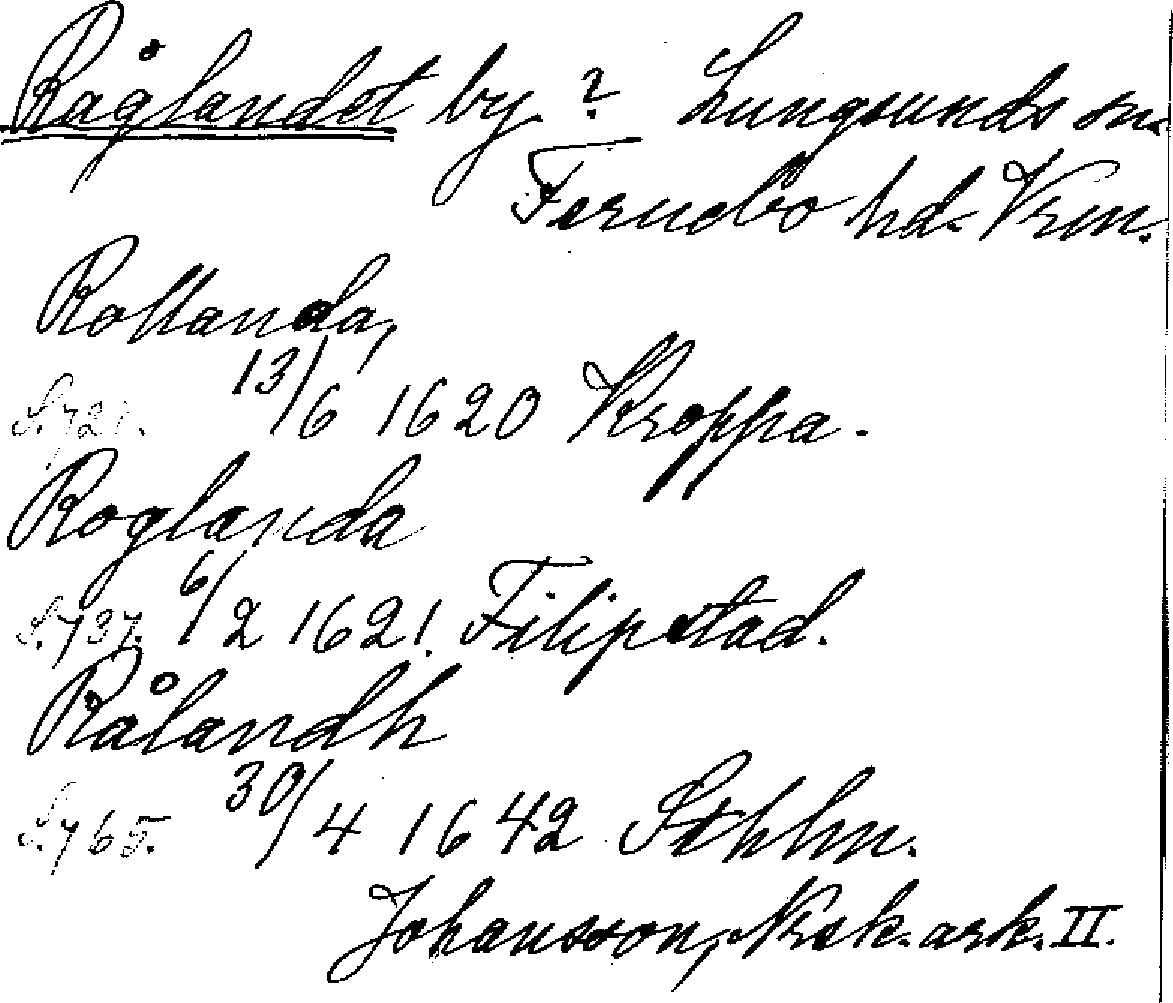 Råglandet by? Lungsunds sn.
Fernebo hd. Vrm.
Rollanda,
S. 721. 13/6 1620 Kroppa.
Roglanda
S. 737. 6/2 1621. Filipstad.
Rålandh
S. 765. 30/4 1642 Sthlm.
Johansson, Nrsk. ark. II.